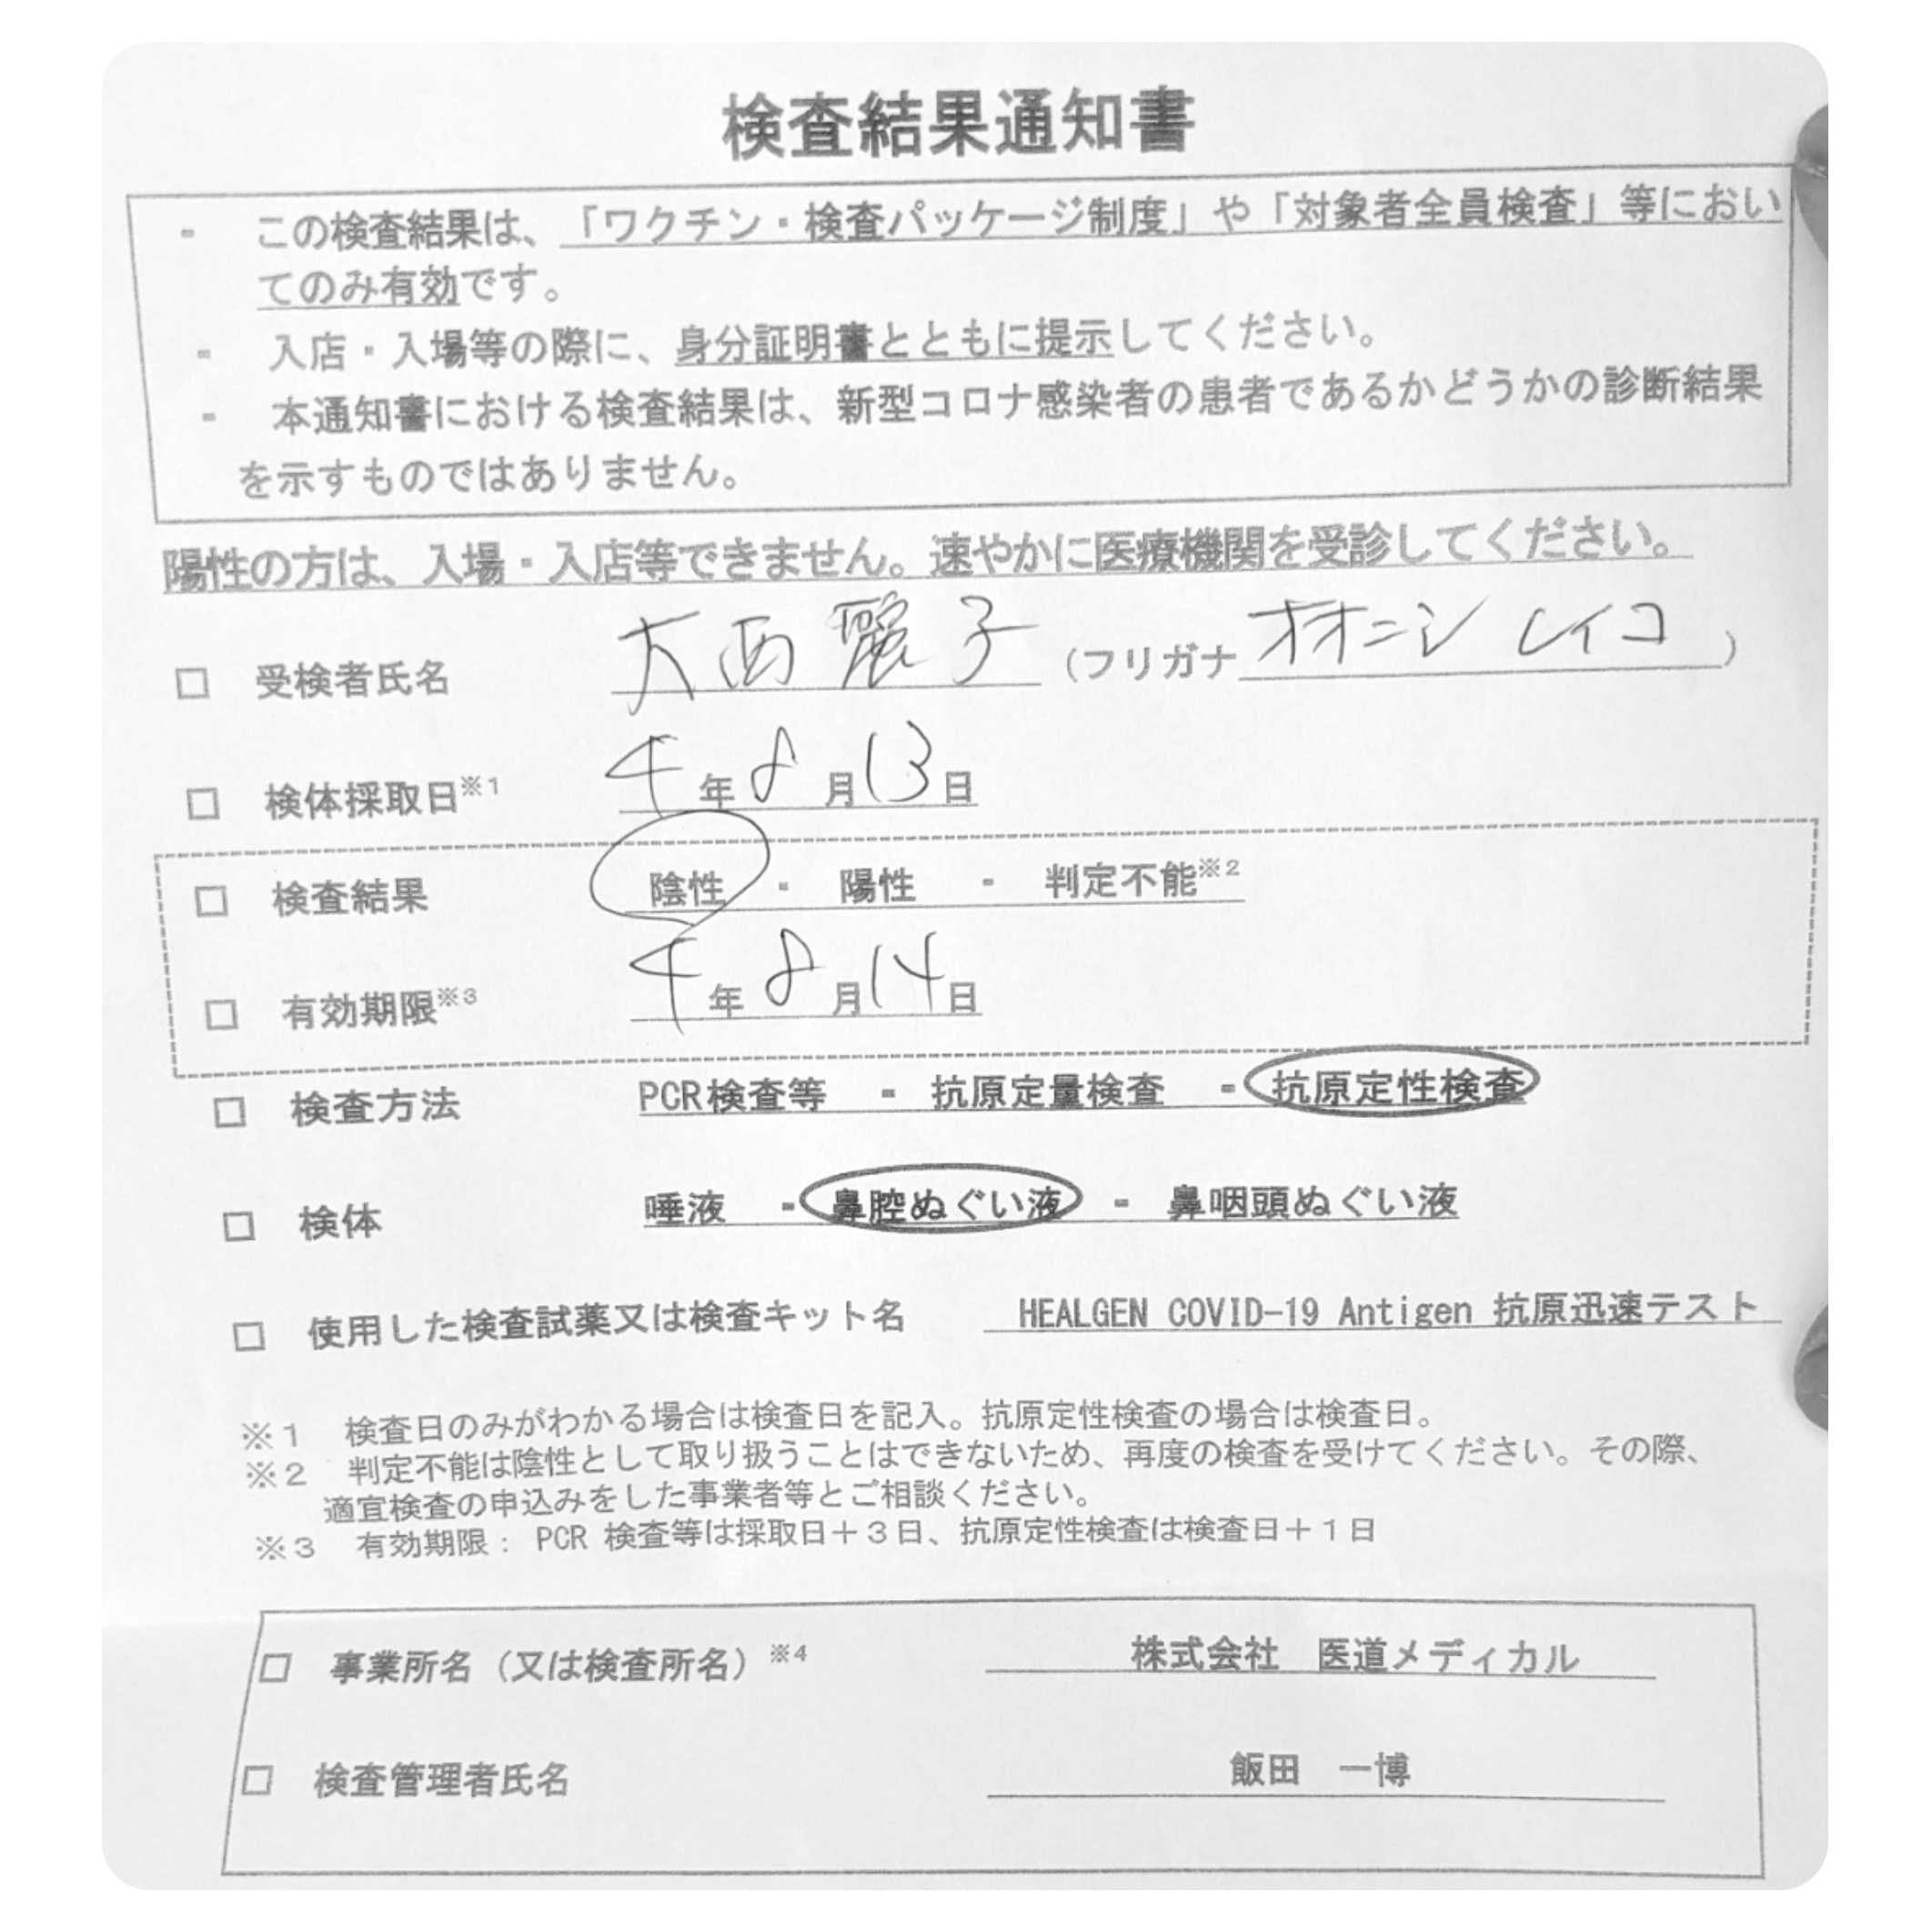 検査結果通知書
- この検査結果は、「ワクチン・検査パッケージ制度」や「対象者全員検査」等におい
てのみ有効です。
- 入店・入場等の際に、身分証明書とともに提示してください。
- 本通知書における検査結果は、新型コロナ感染者の患者であるかどうかの診断結果
を示すものではありません。
陽性の方は、入場・入店等できません。速やかに医療機関を受診してください。
□ 受検者氏名 大西麗子 (フリガナ オオニシ レイコ)
□ 検体採取日※1 4年8月13日
□ 検査結果 陰性 ・ 陽性 ・ 判定不能※2
□ 有効期限※3 4年8月14日
□ 検査方法 PCR検査等 ・ 抗原定量検査 ・ 抗原定性検査
□ 検体 唾液 ・ 鼻腔ぬぐい液 ・ 鼻咽頭ぬぐい液
□ 使用した検査試薬又は検査キット名 HEALGEN COVID-19 Antigen 抗原迅速テスト
※1 検査日のみがわかる場合は検査日を記入。抗原定性検査の場合は検査日。
※2 判定不能は陰性として取り扱うことはできないため、再度の検査を受けてください。その際、
適宜検査の申込みをした事業者等とご相談ください。
※3 有効期限: PCR 検査等は採取日+3日、抗原定性検査は検査日+1日
□ 事業所名(又は検査所名)※4 株式会社 医道メディカル
□ 検査管理者氏名 飯田 一博